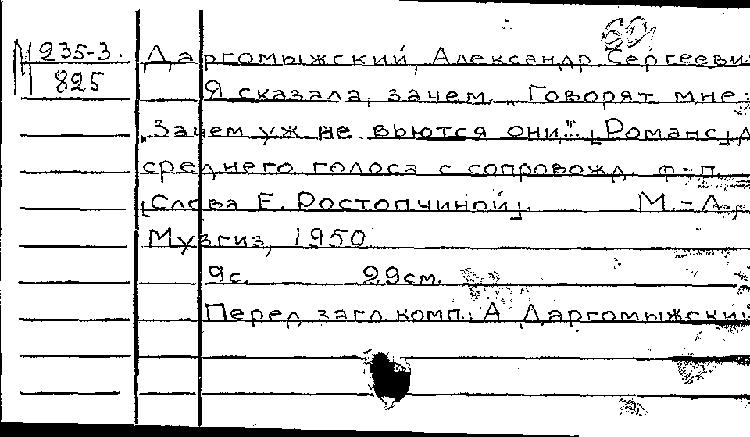 60
М 235-3
825
Даргомыжский, Александр Сергеевич
Я сказала, зачем... Говорят мне:
"Зачем уж не вьются они"... [Романс] д
среднего голоса с сопровожд. ф-п.
[Слова Е. Ростопчиной]. М.-Л.,
Музгиз, 1950
9с. 29см.
Перед загл. комп.: А. Даргомыжский